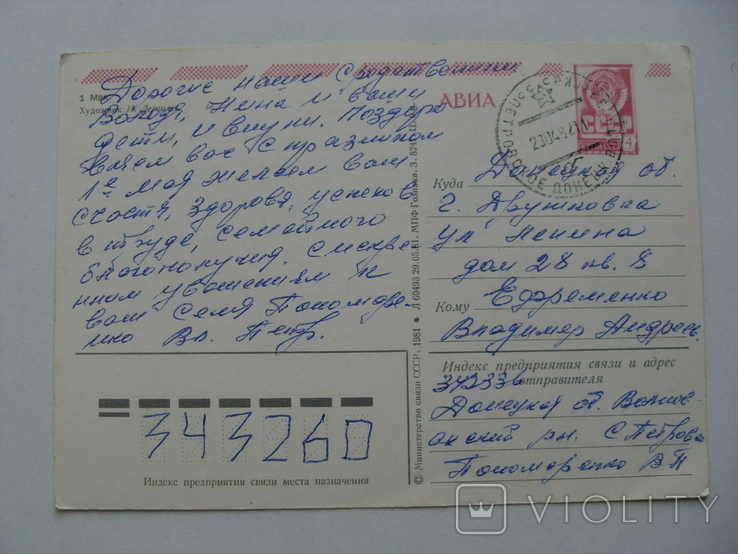 Дорогие наши родственники
Володя, Нена и ваши
дети, и внуки. Поздра
вляем вас с праздником
1е мая желаем вам
счастя, здоровя, успехов
в труде, семейного
благополучия. С искре
нним уважением к
вам Семя Пономаре
нко Вл. Петр.
1 Мая
Художник
АВИА
23048211
ДОНЕЦК
СССР
4
Куда Донецкая об.
г. Дружковка
ул Ленина
дом 28 кв. 8
Кому Ефременко
Владимер Андреев.
Индекс предприятия связи и адрес
отправителя
342336
Донецкая об. Волнов
ахский рн. С Петровс
Пономоренко В П
343260
Индекс предприятия связи места назначения
© Министерство связи СССР, 1981 ● Л 60493 29.05.81. МПФ Гознака. З. 824
VIOLITY